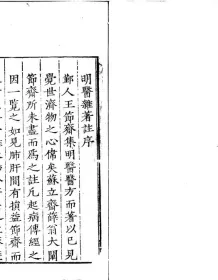 明醫雜著註序
鄞人王節齋集明醫醫方而著以已見
覺世濟物之心偹矣蘇立齋薛翁大闡
節齋所未盡而爲之註凡起病傳經之
因一覽之如見肺肝間有損益節齋而